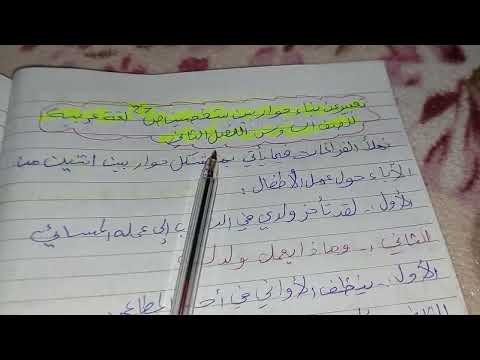 تعبير عن بناء حوار بين شخصين ص27 لغة عربية
للصف السادس الفصل الثاني
نملأ الفراغات فيما يأتي بما يشكل حوار بين اثنين من
الآباء حول عمل الأطفال :
الأول .. لقد تأخر ولدي في الذهاب إلى عمله المسائي
الثاني .. وماذا يعمل ولدك
الأول .. ينظف الأواني في أحد المطاعم